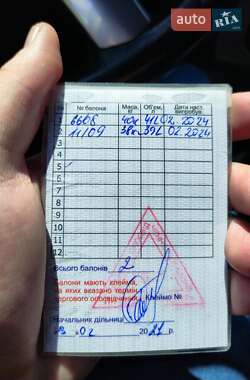 AUTO RIA
№ № балона Маса, кг Об'єм, л Дата наст. випробув.
1 6605 40к 41л 02.2024
2 11109 38к 39л 02.2024
3
4
5
6
7
8
9
10
11
12
Всього балонів 2
Балони мають клейма,
на яких вказано термін
чергового обсвідчення Клеймо №
Начальник дільниці
02 20 р.